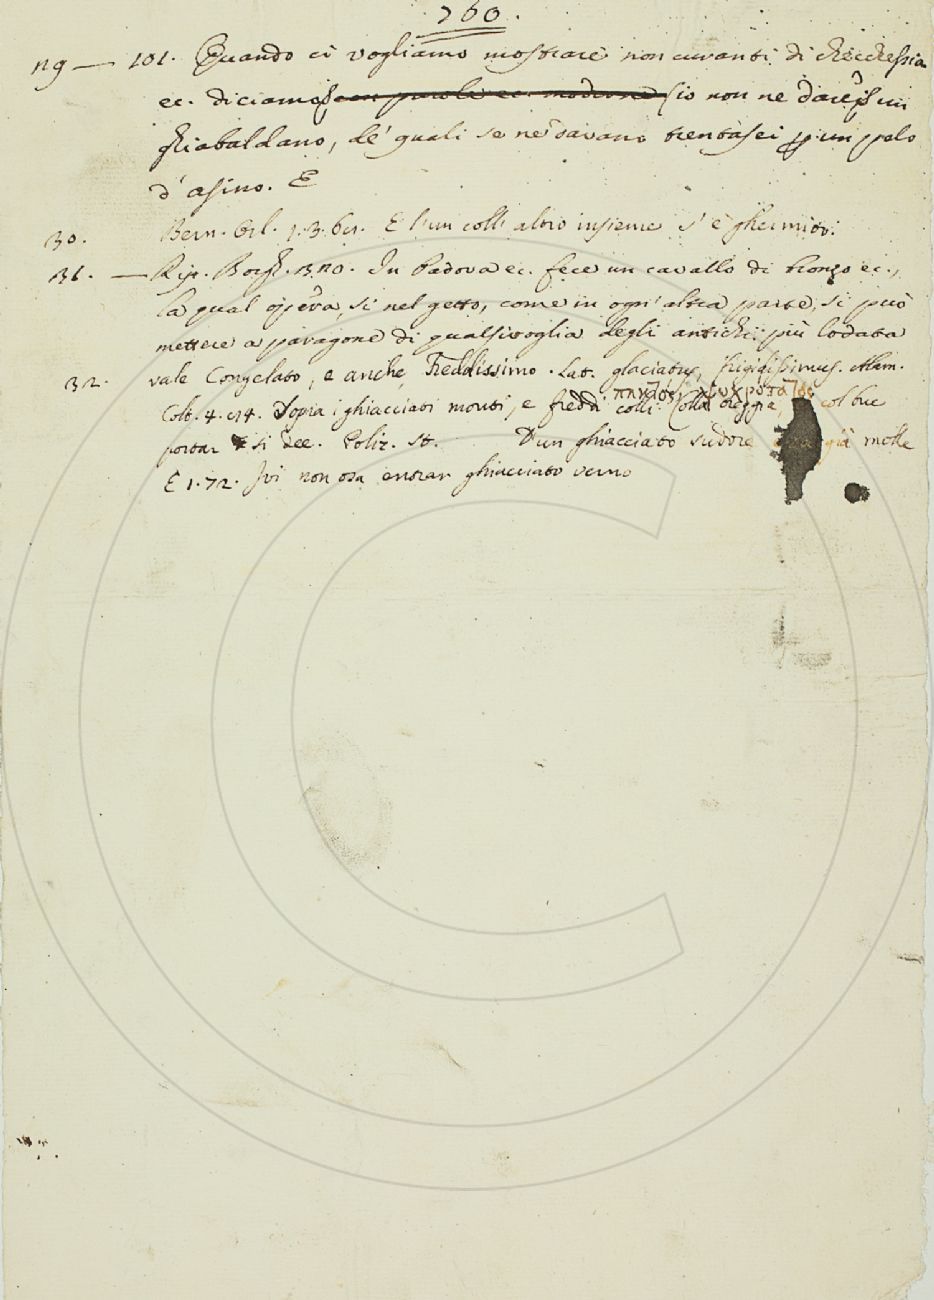 760.
29 — 101. Quando ci vogliamo mostrare non curanti di checchessia
ec. diciamo con parole ec. moderne (io non ne darei un
ghiabaldano, de' quali se ne davano trentasei p. un pelo
d'asino. E
30. Bern. Orl. 1. 3. 61. E l'un coll'altro insieme s'è ghermito.
31. — Rip. Borgh. 320. In Padova ec. fece un cavallo di bronzo ec.,
la qual opera, sì nel getto, come in ogn'altra parte, si può
mettere a paragone di qualsivoglia degli antichi più lodata
32. vale Congelato, e anche Freddissimo. Lat. glaciatus, frigidissimus. Alam.
πηκτὸς, ψυχρότατος
Colt. 4. 94. Sopra i ghiacciati monti, e freddi colli Colla treggia, col bue
portar si dee. Poliz. st. D'un ghiacciato sudore era già molle
E 1. 72. Ivi non osa entrar ghiacciato verno